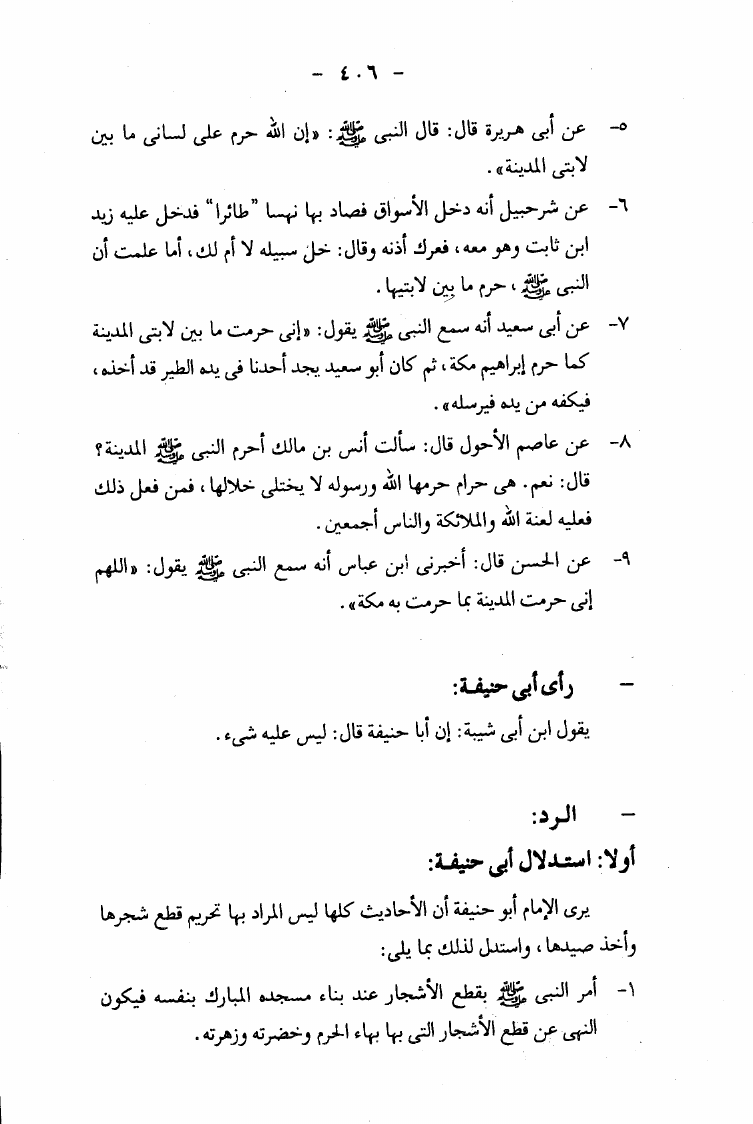 - ٤٠٦ -
٥- عن أبى هريرة قال: قال النبى ﷺ: «إن الله حرم على لسانى ما بين
لابتى المدينة».
٦- عن شرحبيل أنه دخل الأسواق فصاد بها نهسا "طائرا" فدخل عليه زيد
ابن ثابت وهو معه، فعرك أذنه وقال: خل سبيله لا أم لك، أما علمت أن
النبى ﷺ، حرم ما بين لابتيها.
٧- عن أبى سعيد أنه سمع النبى ﷺ يقول: «إنى حرمت ما بين لابتى المدينة
كما حرم إبراهيم مكة، ثم كان أبو سعيد يجد أحدنا فى يده الطير قد أخذه،
فيكفه من يده فيرسله».
٨- عن عاصم الأحول قال: سألت أنس بن مالك أحرم النبى ﷺ المدينة؟
قال: نعم. هى حرام حرمها الله ورسوله لا يختلى خلالها، فمن فعل ذلك
فعليه لعنة الله والملائكة والناس أجمعين.
٩- عن الحسن قال: أخبرنى ابن عباس أنه سمع النبى ﷺ يقول: «اللهم
إنى حرمت المدينة بما حرمت به مكة».
- رأى أبى حنيفة:
يقول ابن أبى شيبة: إن أبا حنيفة قال: ليس عليه شىء.
- الرد:
أولا: استدلال أبى حنيفة:
يرى الإمام أبو حنيفة أن الأحاديث كلها ليس المراد بها تحريم قطع شجرها
وأخذ صيدها، واستدل لذلك بما يلى:
١- أمر النبى ﷺ بقطع الأشجار عند بناء مسجده المبارك بنفسه فيكون
النهى عن قطع الأشجار التى بها بهاء الحرم وخضرته وزهرته.